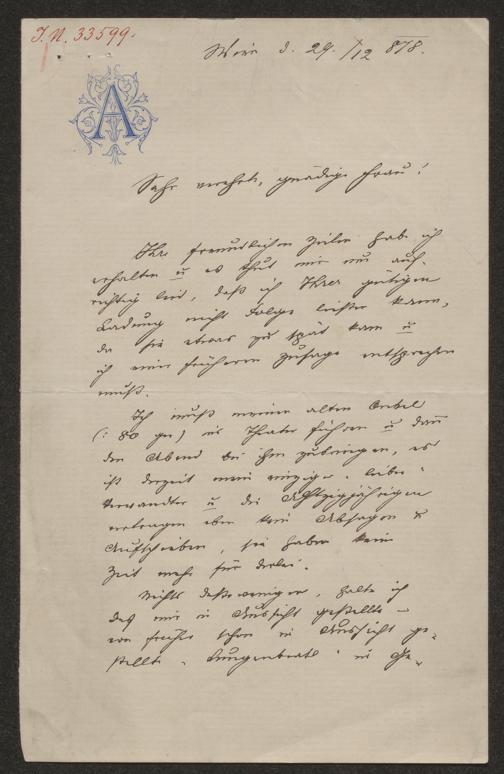 J.N. 33599.
Wien d. 29./12 878.
A
Sehr verehrte, gnädige Frau!
Ihre freundlichen Zeilen habe ich
erhalten u es thut mir nun auf-
richtig leid, daß ich Ihrer gütigen
Ladung nicht Folge leisten kann,
da sie etwas zu spät kam u
ich einer früheren Zusage entsprechen
muß.
Ich muß meinen alten Onkel
(: 80 ger) ins Theater führen u dann
den Abend bei ihm zubringen, es
ist derzeit mein einziger "lieber"
Verwandter u die Achtzigjährigen
vertragen eben kein Absagen &
Aufschieben, sie haben keine
Zeit mehr für derlei.
Nichts desto weniger, halte ich
das mir in Aussicht gestellte –
von früher schon in Aussicht ge-
stellte "Lungenbratl" in Ge-